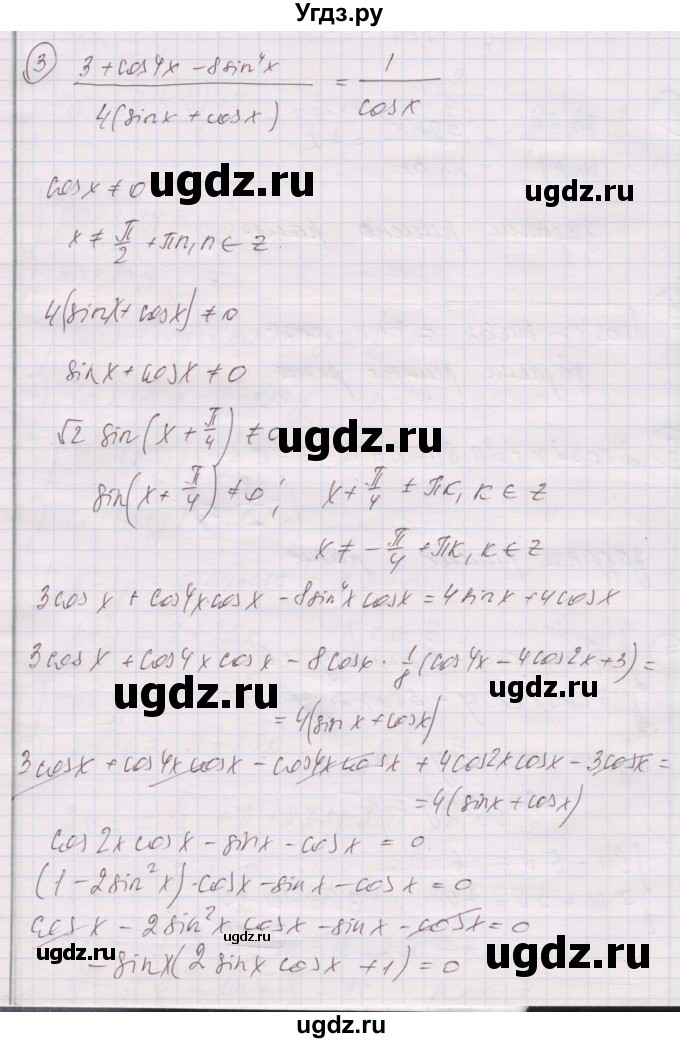 Угдз.ру
3) (3 + cos4x - 8sin⁴x) / (4(sinx + cosx)) = 1/cosx
cosx ≠ 0
ugdz.ru
ugdz.ru
x ≠ π/2 + πn, n ∈ Z.
4(sinx + cosx) ≠ 0
sinx + cosx ≠ 0
√2 sin(x + π/4) ≠ 0
ugdz.ru
sin(x + π/4) ≠ 0; x + π/4 ≠ πk, k ∈ Z
x ≠ -π/4 + πk, k ∈ Z
3cosx + cos4x·cosx - 8sin⁴x cosx = 4sinx + 4cosx
3cosx + cos4x cosx - 8cosx · 1/8 (cos4x - 4cos2x + 3) =
ugdz.ru
ugdz.ru
= 4(sinx + cosx)
3cosx + cos4x cosx - cos4x cosx + 4cos2x cosx - 3cosx =
= 4(sinx + cosx)
cos2x cosx - sinx - cosx = 0
(1 - 2sin²x)·cosx - sinx - cosx = 0
cosx - 2sin²x cosx - sinx - cosx = 0
ugdz.ru
ugdz.ru
-sinx(2sinx cosx + 1) = 0
ugdz.ru